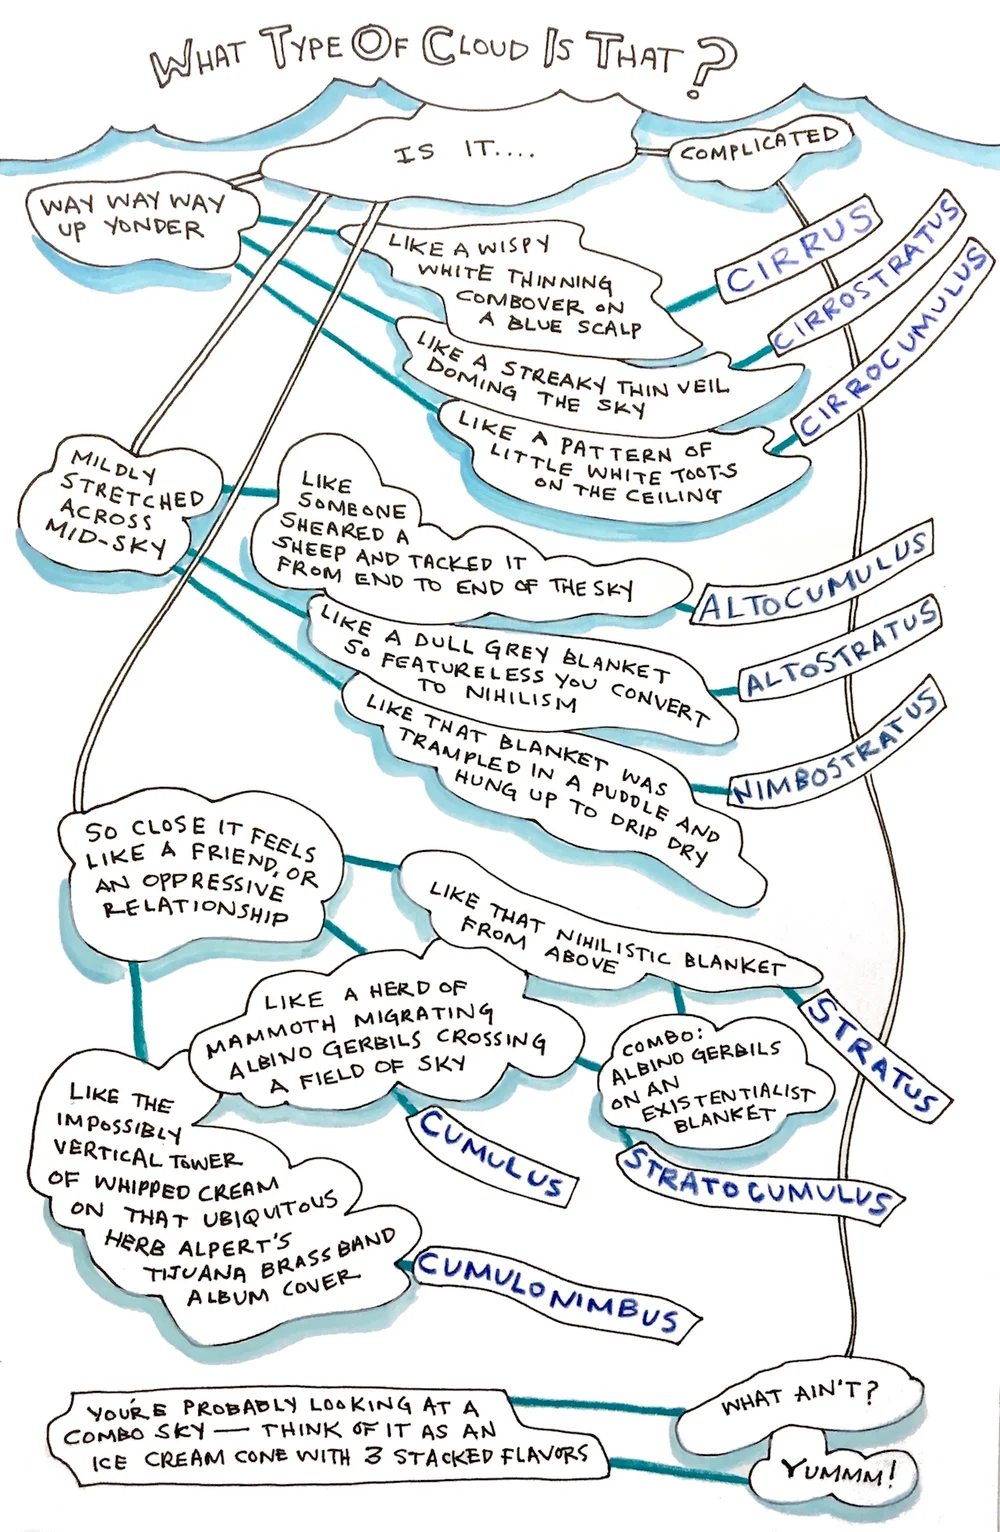 WHAT TYPE OF CLOUD IS THAT?
IS IT....
COMPLICATED
WAY WAY WAY
UP YONDER
LIKE A WISPY
WHITE THINNING
COMBOVER ON
A BLUE SCALP
CIRRUS
LIKE A STREAKY THIN VEIL
DOMING THE SKY
CIRROSTRATUS
LIKE A PATTERN OF
LITTLE WHITE TOOTS
ON THE CEILING
CIRROCUMULUS
MILDLY
STRETCHED
ACROSS
MID-SKY
LIKE
SOMEONE
SHEARED A
SHEEP AND TACKED IT
FROM END TO END OF THE SKY
ALTOCUMULUS
LIKE A DULL GREY BLANKET
SO FEATURELESS YOU CONVERT
TO NIHILISM
ALTOSTRATUS
LIKE THAT BLANKET WAS
TRAMPLED IN A PUDDLE AND
HUNG UP TO DRIP DRY
NIMBOSTRATUS
SO CLOSE IT FEELS
LIKE A FRIEND, OR
AN OPPRESSIVE
RELATIONSHIP
LIKE THAT NIHILISTIC BLANKET
FROM ABOVE
STRATUS
LIKE A HERD OF
MAMMOTH MIGRATING
ALBINO GERBILS CROSSING
A FIELD OF SKY
CUMULUS
COMBO:
ALBINO GERBILS
ON AN
EXISTENTIALIST
BLANKET
STRATOCUMULUS
LIKE THE
IMPOSSIBLY
VERTICAL TOWER
OF WHIPPED CREAM
ON THAT UBIQUITOUS
HERB ALPERT'S
TIJUANA BRASS BAND
ALBUM COVER
CUMULONIMBUS
WHAT AIN'T?
YOU'RE PROBABLY LOOKING AT A
COMBO SKY — THINK OF IT AS AN
ICE CREAM CONE WITH 3 STACKED FLAVORS
YUMMM!